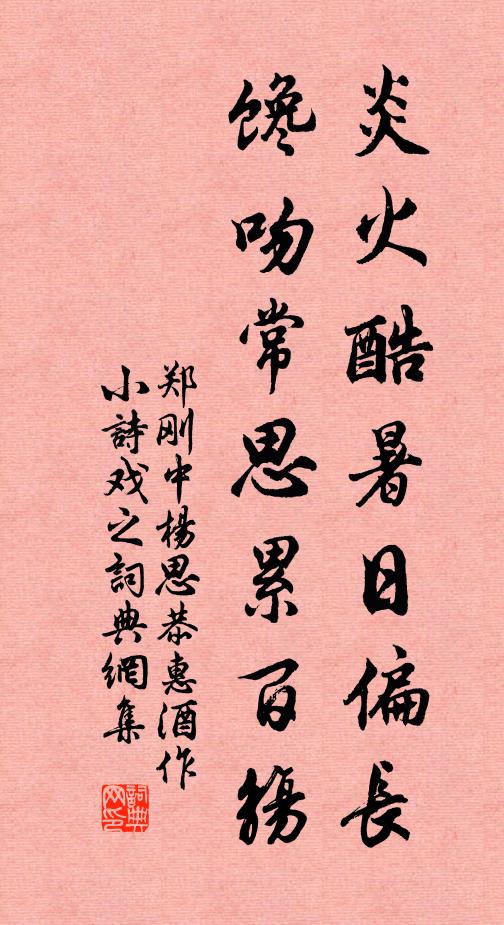 炎火酷暑日偏長
馋吻常思累百觴
郑刚中楊思恭惠酒作
小詩戏之詞典網集
詞典网印